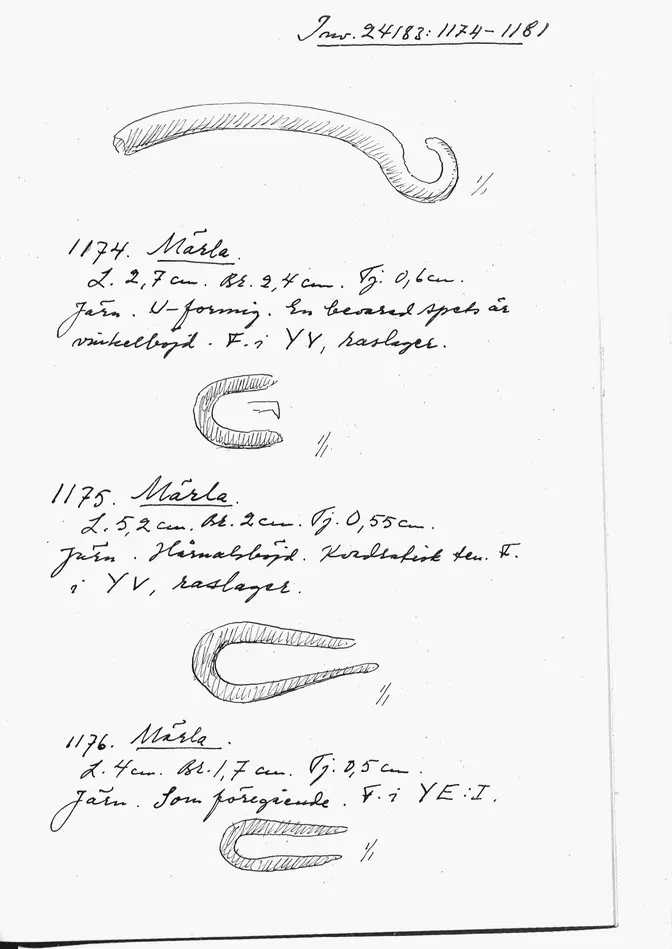 Inv. 24183:1174-1181
1/1
1174. Märla.
L. 2,7 cm. Br. 2,4 cm. Tj. 0,6 cm.
Järn. U-formig. En bevarad spets är
vinkelböjd. F. i YV, raslager.
1/1
1175. Märla.
L. 5,2 cm. Br. 2 cm. Tj. 0,55 cm.
Järn. Hårnålsböjd. Kvadratisk ten. F.
i YV, raslager.
1/1
1176. Märla.
L. 4 cm. Br. 1,7 cm. Tj. 0,5 cm.
Järn. Som föregående. F. i YE:I.
1/1